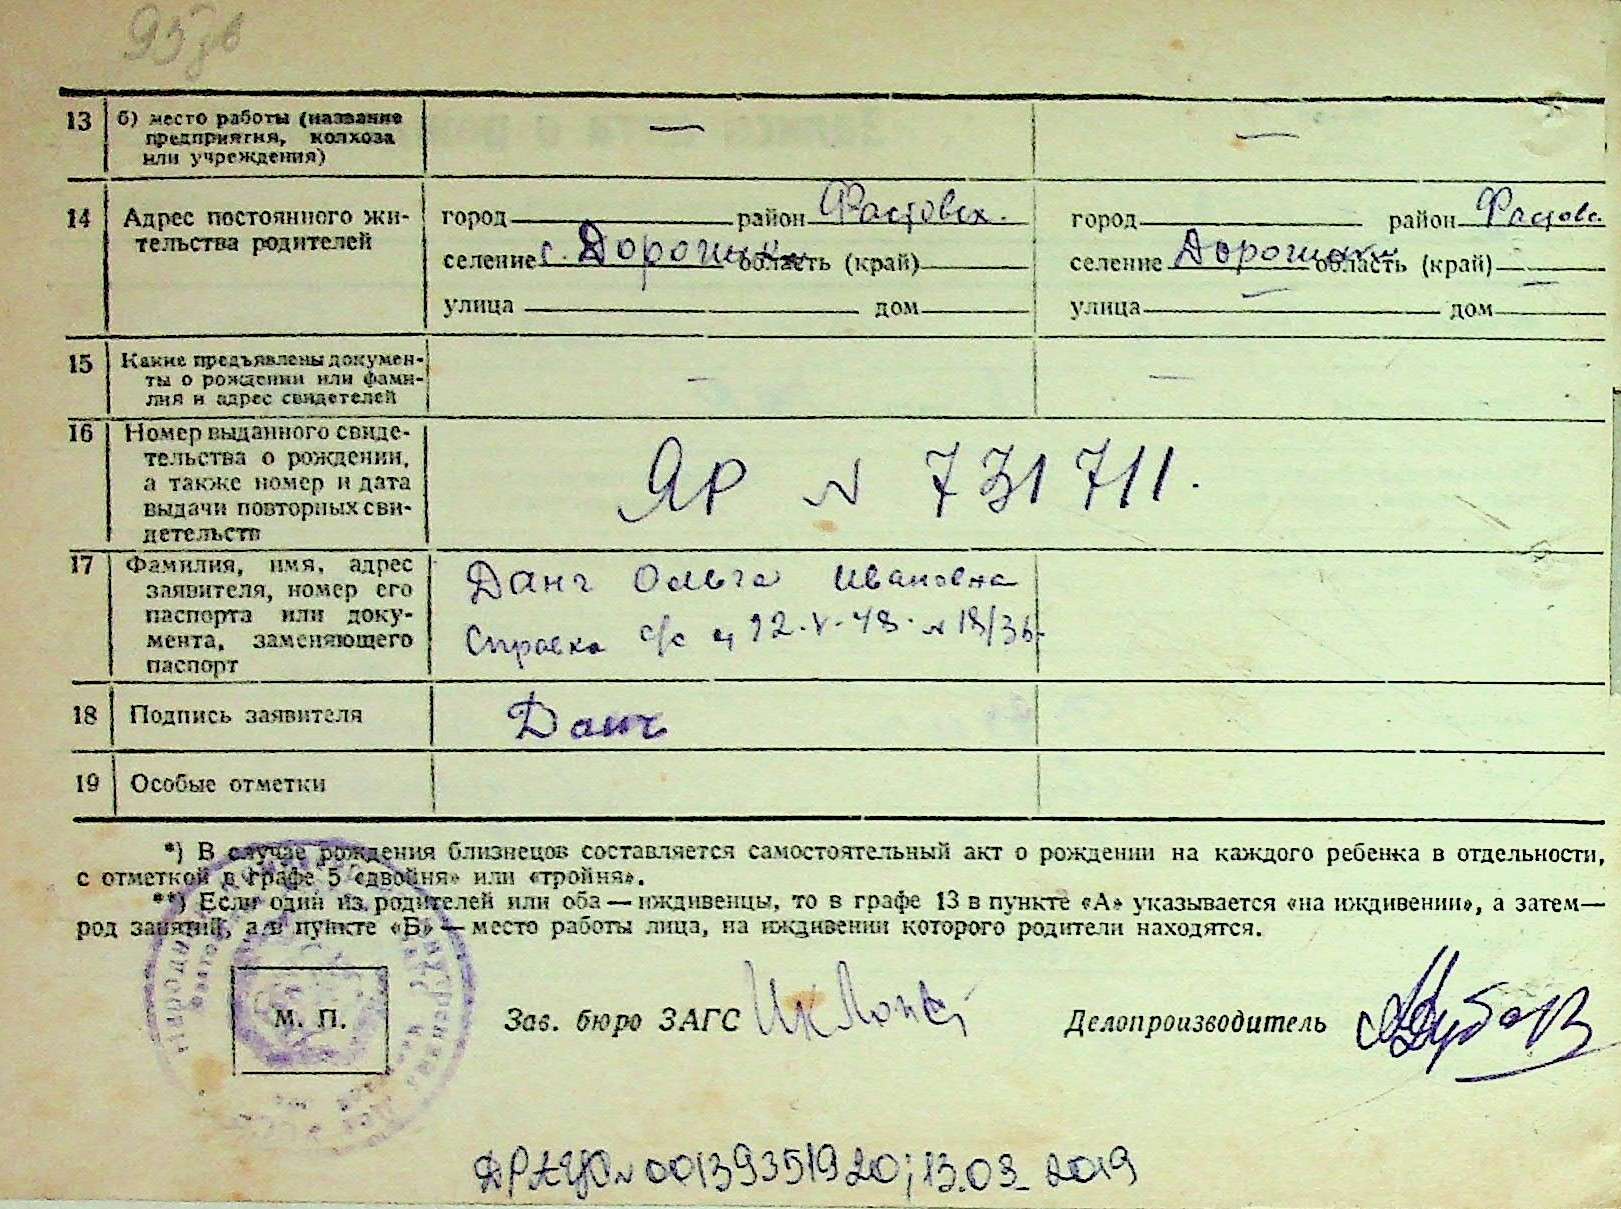 95
13 б) место работы (название
предприятия, колхоза
или учреждения) — —
14 Адрес постоянного жи-
тельства родителей
город район Фастовск. город район Фастовс.
селение с. Дорогинка область (край) селение Дорогинка область (край) —
улица дом улица — дом
15 Какие предъявлены докумен-
ты о рождении или фами-
лия и адрес свидетелей — —
16 Номер выданного свиде-
тельства о рождении,
а также номер и дата
выдачи повторных сви-
детельств
ЯР N 731711.
17 Фамилия, имя, адрес
заявителя, номер его
паспорта или доку-
мента, заменяющего
паспорт
Данг Ольга Ивановна
Справка с/с 12.V.48. N 18/36
18 Подпись заявителя Данг
19 Особые отметки
*) В случае рождения близнецов составляется самостоятельный акт о рождении на каждого ребенка в отдельности,
с отметкой в графе 5 «двойня» или «тройня».
**) Если один из родителей или оба — иждивенцы, то в графе 13 в пункте «А» указывается «на иждивении», а затем —
род занятий, а в пункте «Б» — место работы лица, на иждивении которого родители находятся.
М. П.
Зав. бюро ЗАГС
Делопроизводитель
ДРАЦС N 00139351920; 13.03.2019